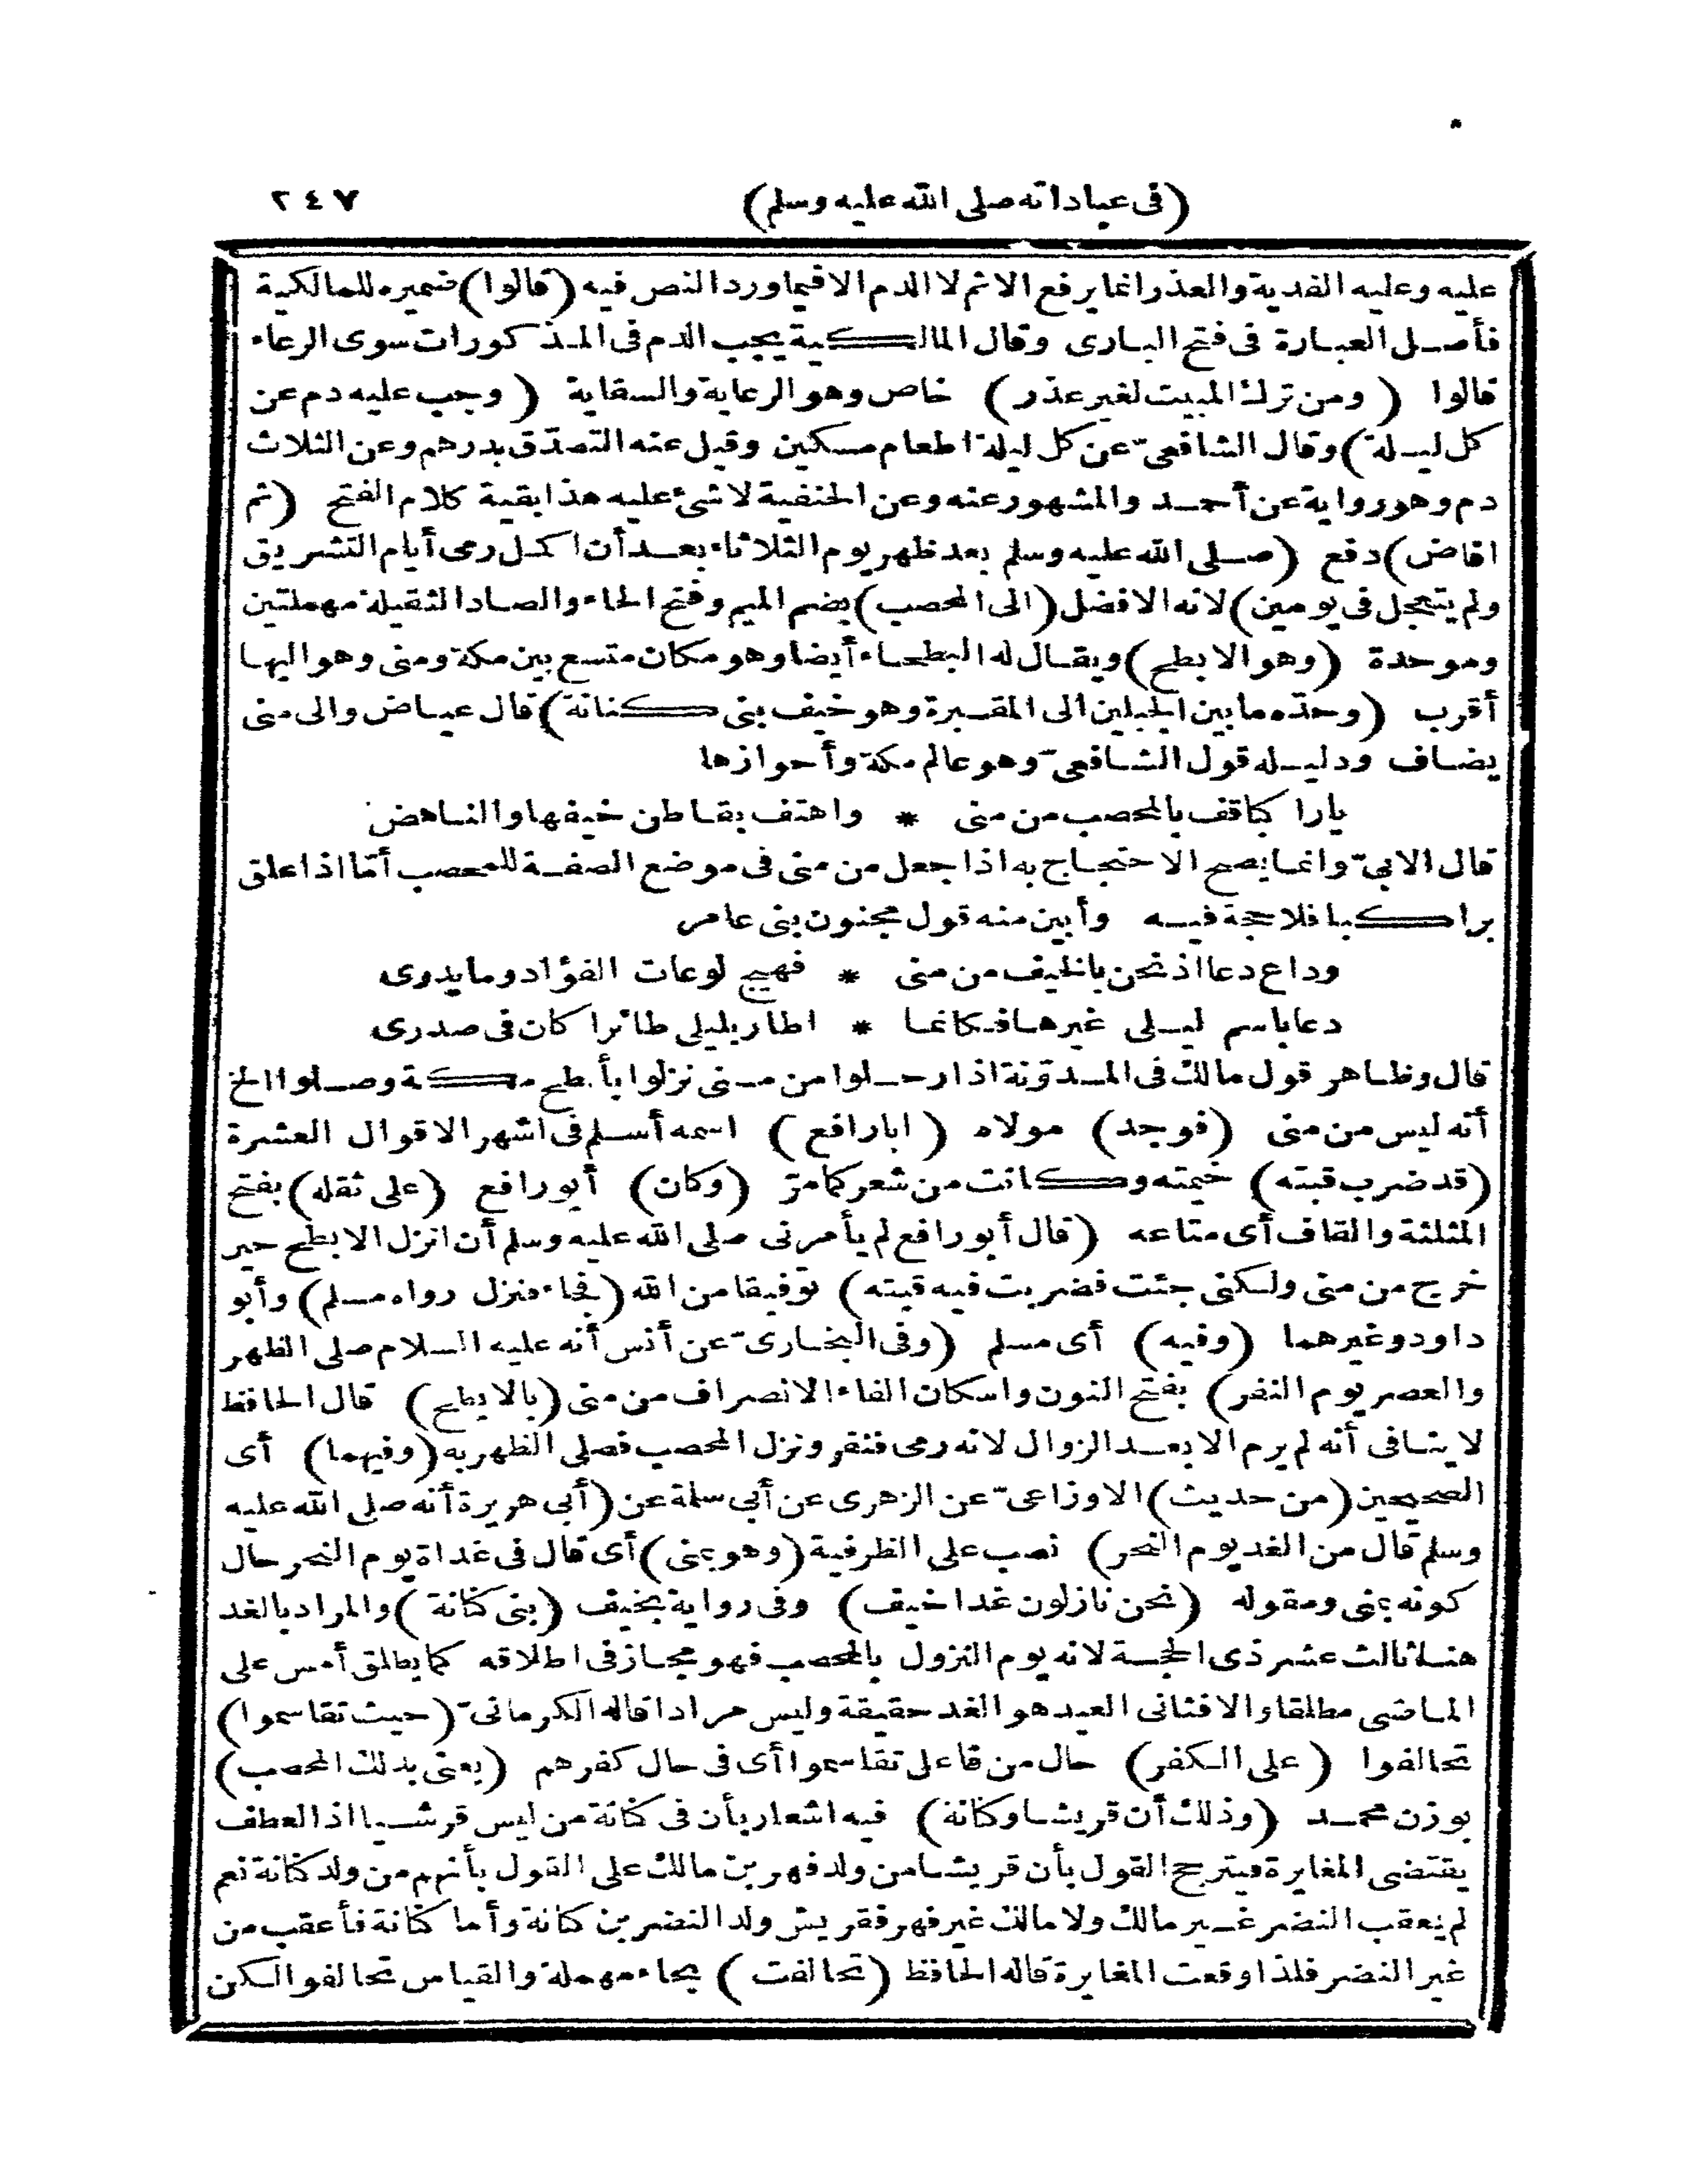 (فى عباداته صلى الله عليه وسلم) ٢٤٧
عليه وعليه الفدية والعذر انما يرفع الاثم لا الدم الا فيما ورد النص فيه (قالوا) ضميره للمالكية
فأصل العبارة فى فتح البارى وقال المالكية يجب الدم فى المذكورات سوى الرعاء
قالوا (ومن ترك المبيت لغير عذر) خاص وهو الرعاية والسقاية (وجب عليه دم عن
كل ليلة) وقال الشافعىّ عن كل ليلة اطعام مسكين وقيل عنه التصدّق بدرهم وعن الثلاث
دم وهو رواية عن أحمد والمشهور عنه وعن الحنفية لا شئ عليه هذا بقية كلام الفتح (ثم
افاض) دفع (صلى الله عليه وسلم بعد ظهر يوم الثلاثاء بعد أن اكمل رمى أيام التشريق
ولم يتعجل فى يومين) لانه الافضل (الى المحصب) بضم الميم وفتح الحاء والصاد الثقيلة مهملتين
وموحدة (وهو الابطح) ويقال له البطحاء أيضا وهو مكان متسع بين مكة ومنى وهو اليها
أقرب (وحدّه ما بين الجبلين الى المقبرة وهو خيف بنى كنانة) قال عياض والى منى
يضاف ودليله قول الشافعىّ وهو عالم مكة وأحوازها
يا راكبا قف بالمحصب من منى * واهتف بقاطن خيفها والناهض
قال الابىّ وانما يصح الاحتجاج به اذا جعل من منى فى موضع الصفة للمحصب أمّا اذا علق
براكبا فلا حجة فيه وأبين منه قول مجنون بنى عامر
وداع دعا اذ نحن بالخيف من منى * فهيج لوعات الفؤاد وما يدرى
دعا باسم ليلى غيرها فكانما * اطار بليلى طائرا كان فى صدرى
قال وظاهر قول مالك فى المدوّنة اذا رحلوا من منى نزلوا بأبطح مكة وصلوا الخ
أنه ليس من منى (فوجد) مولاه (ابا رافع) اسمه أسلم فى اشهر الاقوال العشرة
(قد ضرب قبته) خيمته وكانت من شعر كما مرّ (وكان) أبو رافع (على ثقله) بفتح
المثلثة والقاف أى متاعه (قال أبو رافع لم يأمرنى صلى الله عليه وسلم أن انزل الابطح حين
خرج من منى ولكنى جئت فضربت فيه قبته) توفيقا من الله (فجاء فنزل رواه مسلم) وأبو
داود وغيرهما (وفيه) أى مسلم (وفى البخارىّ عن أنس أنه عليه السلام صلى الظهر
والعصر يوم النفر) بفتح النون واسكان الفاء الانصراف من منى (بالابطح) قال الحافظ
لا ينافى أنه لم يرم الا بعد الزوال لانه رمى فنفر ونزل المحصب فصلى الظهر به (وفيهما) أى
الصحيحين (من حديث) الاوزاعىّ عن الزهرى عن أبى سلمة عن (أبى هريرة أنه صلى الله عليه
وسلم قال من الغد يوم النحر) نصب على الظرفية (وهو بمنى) أى قال فى غداة يوم النحر حال
كونه بمنى ومقوله (نحن نازلون غدا خيف) وفى رواية بخيف (بنى كنانة) والمراد بالغد
هنا ثالث عشر ذى الحجة لانه يوم النزول بالمحصب فهو مجاز فى اطلاقه كما يطلق أمس على
الماضى مطلقا والا فثانى العيد هو الغد حقيقة وليس مرادا قاله الكرمانىّ (حيث تقاسموا)
تحالفوا (على الكفر) حال من فاعل تقاسموا أى فى حال كفرهم (يعنى بذلك المحصب)
بوزن محمد (وذلك أن قريشا وكنانة) فيه اشعار بأن فى كنانة من ليس قرشيا اذ العطف
يقتضى المغايرة فيترجح القول بأن قريشا من ولد فهر بن مالك على القول بأنهم من ولد كنانة نعم
لم يعقب النضر غير مالك ولا مالك غير فهر فقريش ولد النضر بن كنانة وأما كنانة فأعقب من
غير النضر فلذا وقعت المغايرة قاله الحافظ (تحالفت) بحاء مهملة والقياس تحالفوا لكن